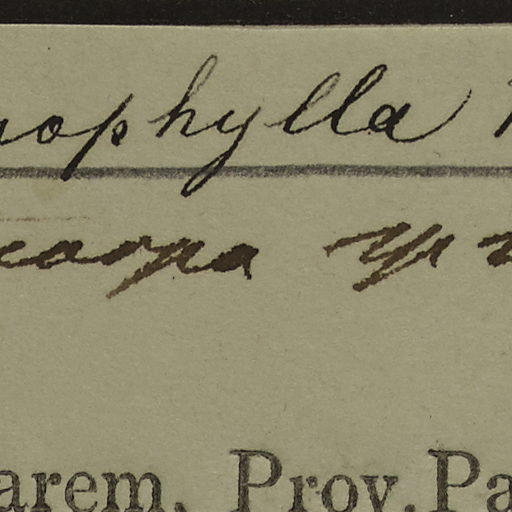 nophylla
carpa
arem, Prov. Pa